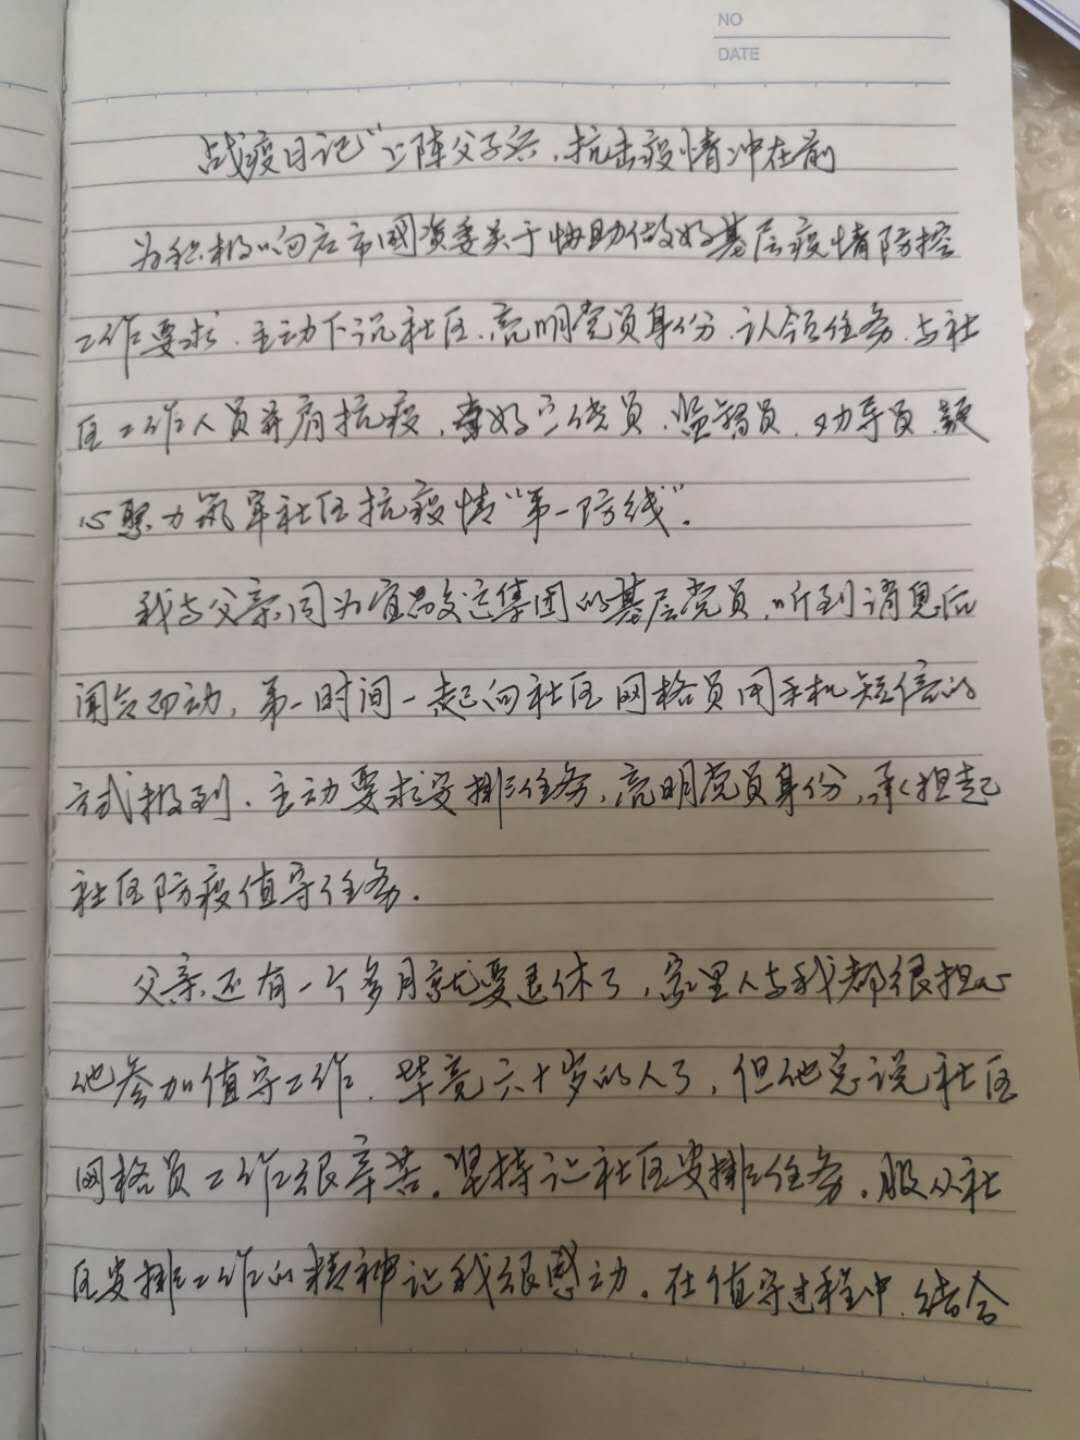 NO
DATE
战疫日记“上阵父子兵,抗击疫情冲在前
为积极响应市国资委关于协助做好基层疫情防控
工作要求,主动下沉社区,亮明党员身份,认领任务,与社
区工作人员并肩抗疫,当好宣传员,监督员,劝导员,凝
心聚力筑牢社区抗疫情“第一防线”.
我与父亲同为宜昌交运集团的基层党员,听到消息后
闻令而动,第一时间一起向社区网格员用手机短信的
方式报到,主动要求安排任务,亮明党员身份,承担起
社区防疫值守任务.
父亲还有一个多月就要退休了,家里人与我都很担心
他参加值守工作,毕竟六十岁的人了,但他总说社区
网格员工作很辛苦。坚持让社区安排任务。服从社
区安排工作的精神让我很感动。在值守过程中,结合